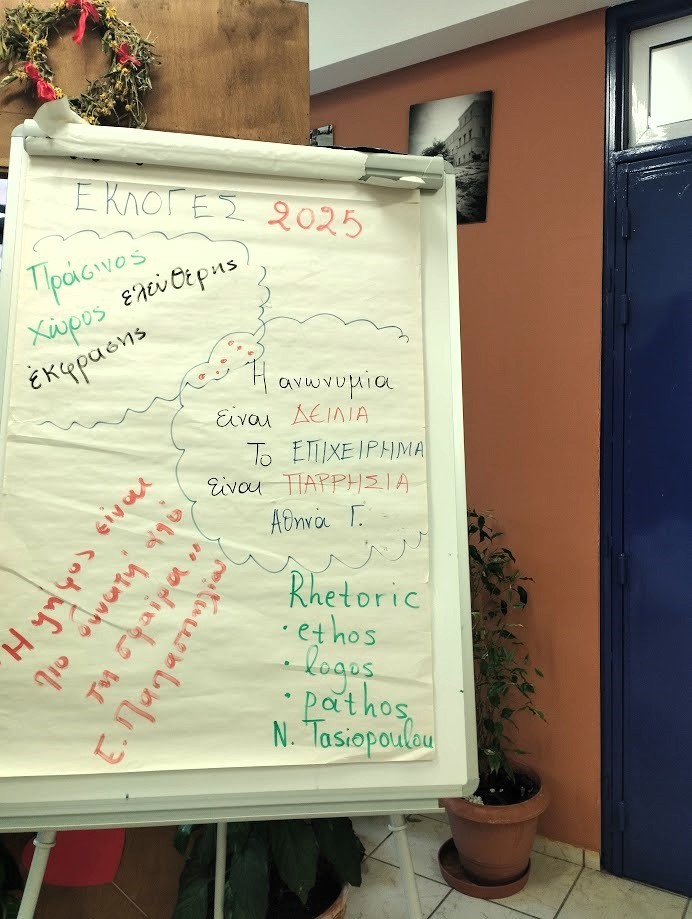 ΕΚΛΟΓΕΣ 2025
Πράσινος
χώρος ελεύθερης
έκφρασης
Η ανωνυμία
είναι ΔΕΙΛΙΑ
Το ΕΠΙΧΕΙΡΗΜΑ
είναι ΠΑΡΡΗΣΙΑ
Αθηνά Γ.
"Η ψήφος είναι
πιο δυνατή από
τη σφαίρα"
Ε. Παπασπηλίου
Rhetoric
• ethos
• logos
• pathos
N. Tasiopoulou